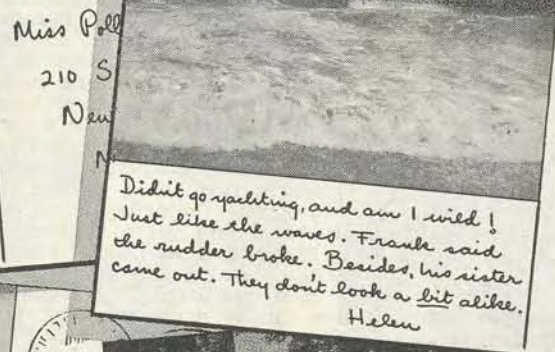 Miss Poll
210 S
New
N
Didn't go yachting, and am I wild!
Just like the waves. Frank said
the rudder broke. Besides, his sister
came out. They don't look a bit alike.
Helen